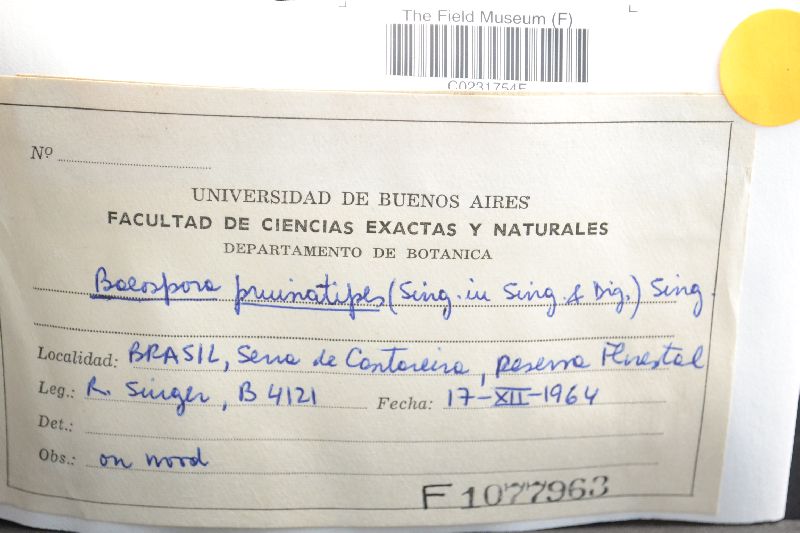 The Field Museum (F)
C0231754F
Nº
UNIVERSIDAD DE BUENOS AIRES
FACULTAD DE CIENCIAS EXACTAS Y NATURALES
DEPARTAMENTO DE BOTANICA
Baeospora pruinatipes (Sing. in Sing. & Dig.) Sing.
Localidad: BRASIL, Serra de Cantareira, Reserva Florestal
Leg.: R. Singer, B 4121 Fecha: 17-XII-1964
Det.:
Obs.: on wood
F1077963